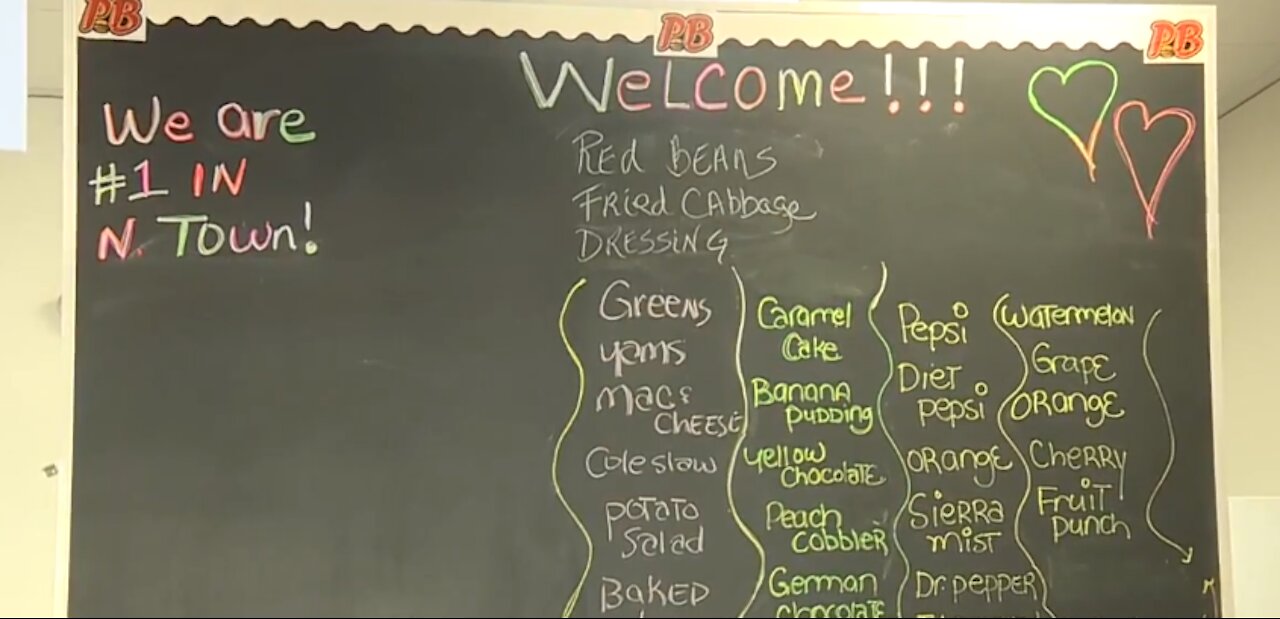 PB
PB
PB
Welcome!!!
We are
#1 IN
N. Town!
Red BEANS
FRied CAbbage
DRESSiNG
Greens
yams
mac &
CHEESE
Coleslaw
POTATO
Salad
BAKED
Caramel
Cake
Banana
Pudding
yellow
Chocolate
Peach
Cobbler
German
chocolate
Pepsi
Diet
pepsi
ORange
Sierra
mist
Dr. PEPPER
Watermelon
Grape
ORange
Cherry
Fruit
Punch